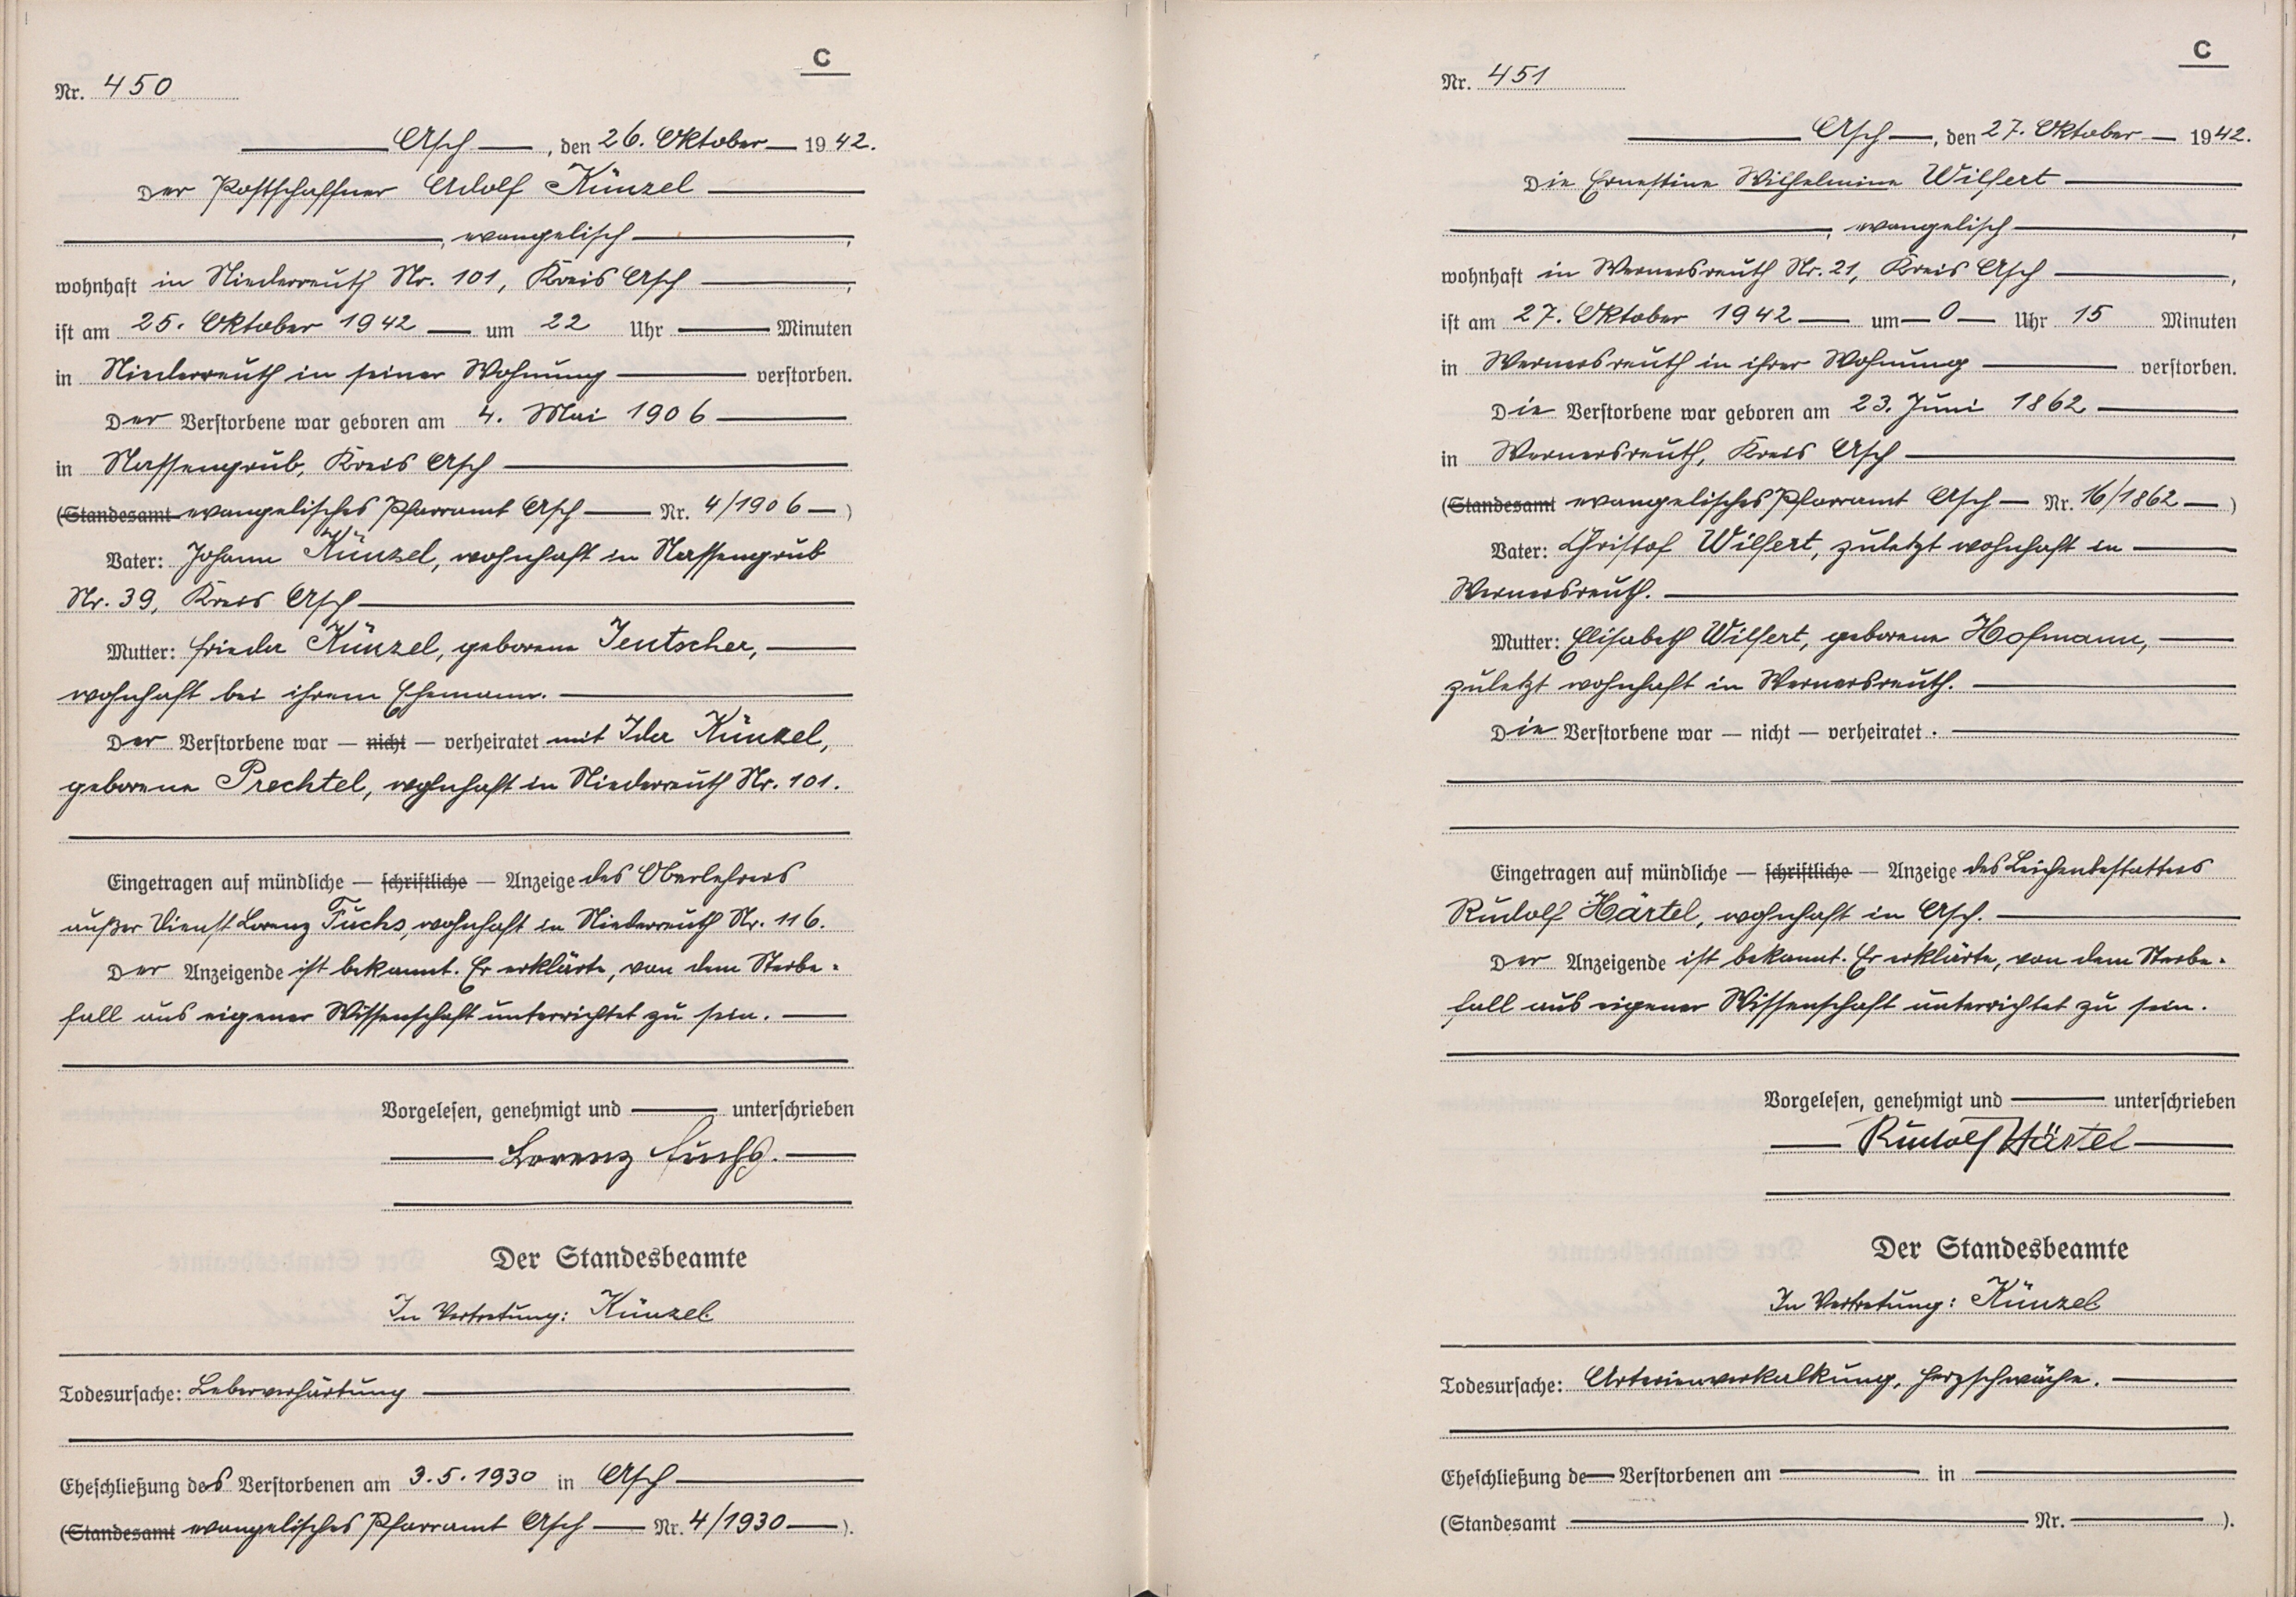 C
Nr. 450
Asch, den 26. Oktober 1942.
Der Postschaffner Adolf Künzel
, evangelisch ,
wohnhaft in Niederreuth Nr. 101, Kreis Asch ,
ist am 25. Oktober 1942 um 22 Uhr Minuten
in Niederreuth in seiner Wohnung verstorben.
Der Verstorbene war geboren am 4. Mai 1906
in Nassengrub, Kreis Asch
(Standesamt evangelisches Pfarramt Asch Nr. 4/1906 )
Vater: Johann Künzel, wohnhaft in Nassengrub
Nr. 39, Kreis Asch
Mutter: Frieda Künzel, geborene Jentscher,
wohnhaft bei ihrem Ehemann.
Der Verstorbene war — nicht — verheiratet mit Ida Künzel,
geborene Prechtel, wohnhaft in Niederreuth Nr. 101.
Eingetragen auf mündliche — schriftliche — Anzeige des Oberlehrers
außer Dienst Lorenz Fuchs, wohnhaft in Niederreuth Nr. 116.
Der Anzeigende ist bekannt. Er erklärte, von dem Sterbe-
fall aus eigener Wissenschaft unterrichtet zu sein.
Vorgelesen, genehmigt und unterschrieben
Lorenz Fuchs.
Der Standesbeamte
In Vertretung: Künzel
Todesursache: Leberverhärtung
Eheschließung des Verstorbenen am 3.5.1930 in Asch
(Standesamt evangelisches Pfarramt Asch Nr. 4/1930 ).
C
Nr. 451
Asch, den 27. Oktober 1942.
Die Ernestine Wilhelmine Wilfert
, evangelisch ,
wohnhaft in Wernersreuth Nr. 21, Kreis Asch ,
ist am 27. Oktober 1942 um 0 Uhr 15 Minuten
in Wernersreuth in ihrer Wohnung verstorben.
Die Verstorbene war geboren am 23. Juni 1862
in Wernersreuth, Kreis Asch
(Standesamt evangelisches Pfarramt Asch Nr. 16/1862 )
Vater: Christof Wilfert, zuletzt wohnhaft in
Wernersreuth.
Mutter: Elisabeth Wilfert, geborene Hofmann,
zuletzt wohnhaft in Wernersreuth.
Die Verstorbene war — nicht — verheiratet.
Eingetragen auf mündliche — schriftliche — Anzeige des Leichenbestatters
Rudolf Härtel, wohnhaft in Asch.
Der Anzeigende ist bekannt. Er erklärte, von dem Sterbe-
fall aus eigener Wissenschaft unterrichtet zu sein.
Vorgelesen, genehmigt und unterschrieben
Rudolf Härtel
Der Standesbeamte
In Vertretung: Künzel
Todesursache: Arterienverkalkung, Herzschwäche.
Eheschließung de Verstorbenen am in
(Standesamt Nr. ).